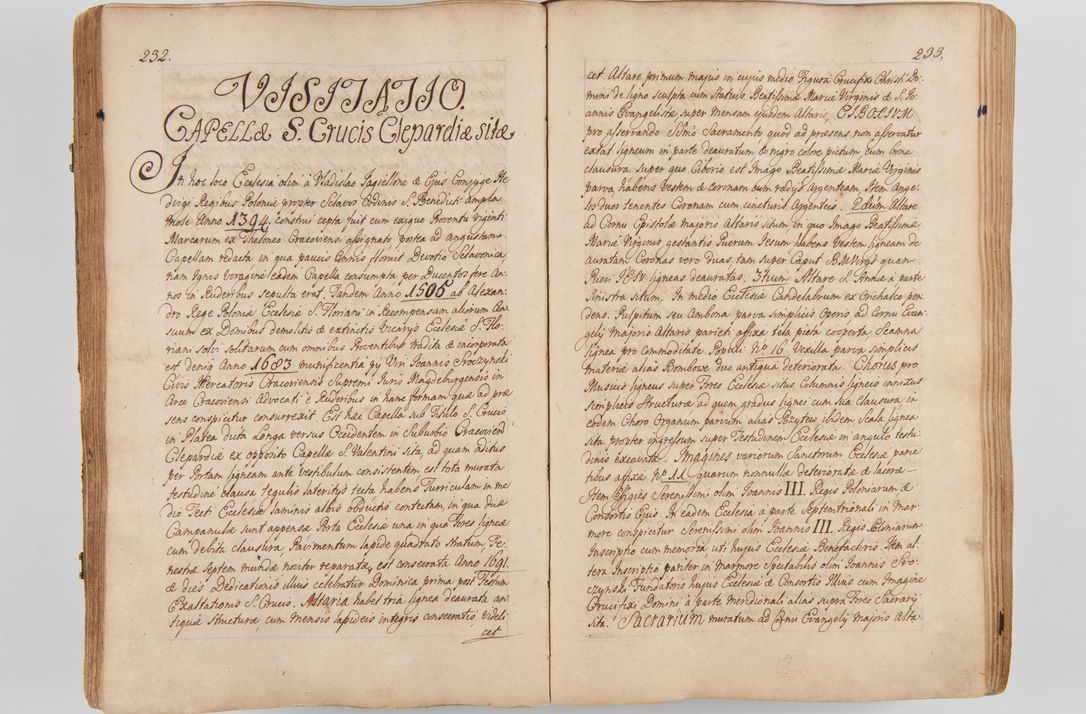 232.
VISITATIO.
CAPELLÆ S. Crucis Clepardiæ sitæ
In hoc loco Ecclesia olim à Vladislao Jagiellone & Ejus Conjuge He-
dvige Regibus Poloniæ propter Sclavos Ordinis S. Benedicti ampla
mole Anno 1394. construi cepta fuit cum exiguo Proventu viginti
Marcarum ex Theloneo Cracoviensi assignato postea ad angustam
Capellam redacta in qua paucis Annis floruit Devotio Sclavonica,
nam Ignis voragine eadem Capella consumpta per Ducentos fere An-
nos in Ruderibus sepulta erat. Tandem Anno 1505 ab Alexan-
dro Rege Poloniæ Ecclesiæ S. Floriani in Recompensam aliorum Cen-
suum ex Domibus demolitis & extinctis Vicarijs Ecclesiæ S. Flo-
riani solvi solitarum cum omnibus Proventibus tradita & incorporata
est deniq Anno 1683 munificentia Viri Joannis Sroczynski
Civis Mercatoris Cracoviensis Supremi Juris Magdeburgensis in
Arce Cracoviensi Advocati è Ruderibus in hanc formam quæ ad præ
sens conspicitur consurrexit. Est hæc Capella sub Titulo S. Crucis
in Platea dicta Longa versus Occidentem in Suburbio Cracoviensi
Clepardiæ ex opposito Capellæ S. Valentini sita, ad quam aditus
per Portam ligneam ante Vestibulum consistentem est tota murata
testudine clausa tegulis lateritijs tecta habens Turriculam in me
dio Tecti Ecclesiæ laminis albis obductis contectam, in qua duæ
Campanulæ sunt appensæ Porta Ecclesiæ una in quo Fores ligneæ
cum debita clausura, Pavimentum lapide quadrato stratum, Fe-
nestræ Septem mundæ noviter reparatæ, est consecrata Anno 1691.
& dies Dedicationis illius celebratur Dominica prima post Festum
Exaltationis S. Crucis. Altaria habet tria lignea deaurata an-
tiquæ structuræ, cum mensis lapideis integris consecratis, videli
cet
233.
cet Altare primum majus in cujus medio Figura Crucifixi Christi Do-
mini de ligno sculpta cum Statuis Beatissimæ Mariæ Virginis & S. Jo-
annis Evangelistæ super mensam ejusdem Altaris, CIBORIUM
pro asservando SSmo Sacramento quod ad præsens non asservatur
extat ligneum in parte deauratum & nigro colore pictum cum bona
clausura super quo Ciborio est Imago Beatissimæ Mariæ Virginis
parva habens Vestem & coronam cum radijs Argenteam. Item Ange-
los duos tenentes Coronam cum cincturis Argenteis. 2dum Altare
ad Cornu Epistolæ majoris Altaris situm in quo Imago Beatissimæ
Mariæ Virginis gestantis Puerum Jesum habens Vestem ligneam de
auratam, Coronas vero duas, tam super Caput B.M.Virgs quam
Pueri JESU ligneas deauratas. 3tium Altare S. Annæ a parte
sinistra situm, In medio Ecclesiæ Candelabrum ex Orichalco pen
dens. Pulpitum seu Ambona parva simplicis Operis ad Cornu Evan-
gelij majoris Altaris parieti affixa tela picta cooperta, Scamna
lignea pro Commoditate Populi No 16. Vexilla parva simplicis
materiæ alias Bombovæ duo antiqua deteriorata. Chorus pro
Musicis ligneus super Fores Ecclesiæ situs Columnis ligneis innixus
simplicis Structuræ ad quem gradus lignei cum sua clausura, in
eodem Choro Organum parvum alias Pozytew ibidem Scala lignea
sita propter ingressum super Testudinem Ecclesiæ in angulo testu
dinis excavata. Imagines variorum Sanctorum Ecclesiæ parie
tibus affixæ No 11 quarum nonnullæ deterioratæ & laceræ –
Item Effigies Serenissimi olim Joannis III. Regis Poloniarum, &
Consortis Ejus. In eadem Ecclesia a parte Septemtrionali in Mar-
more conspicitur Serenissimi olim Joannis III. Regis Poloniarum
Inscriptio cum memoria uti hujus Ecclesiæ Benefactoris. Item al-
tera Inscriptio pariter in marmore Spectabilis olim Joannis Sro-
czynski Fundatoris hujus Ecclesiæ & Consortis Illius cum Imagine
Crucifixi Domini à parte meridionali alias supra Fores Sacrarij
sita. Sacrarium muratum ad Cornu Evangelij majoris Alta-